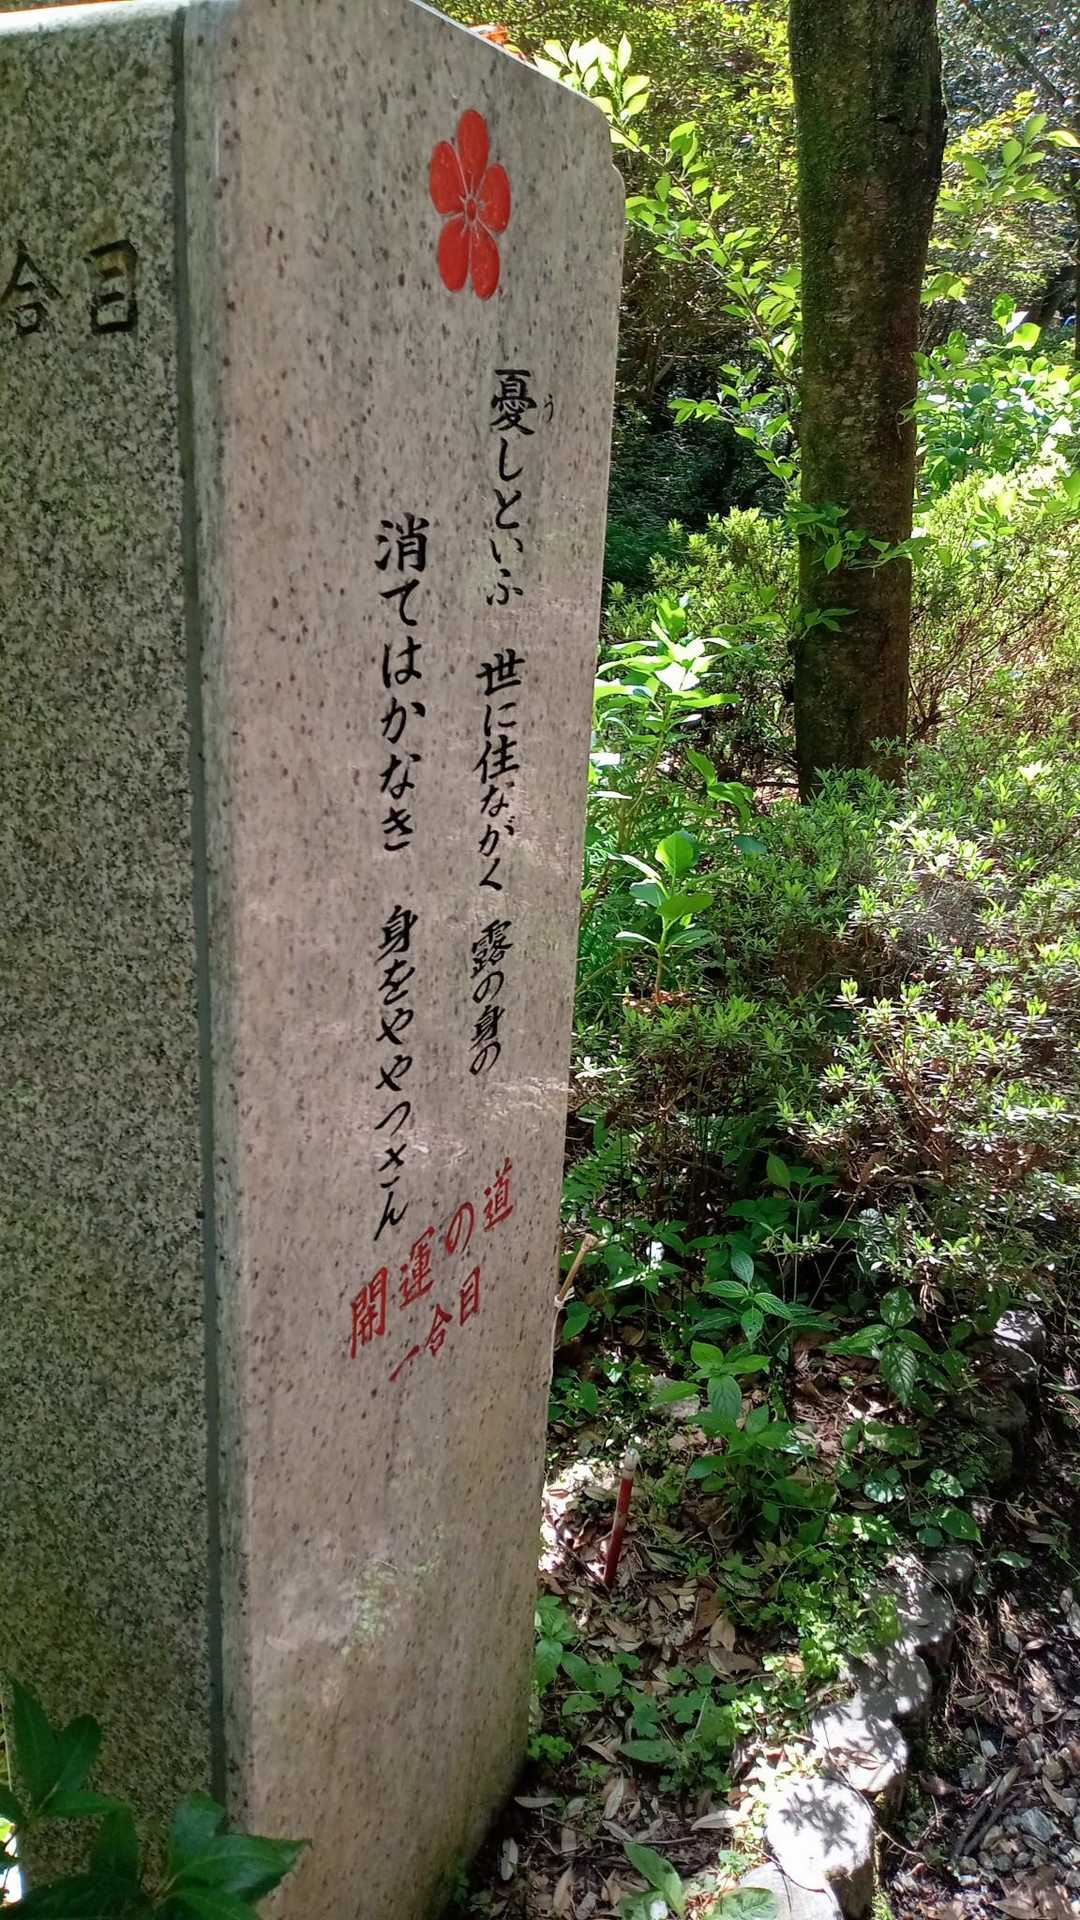 合目
憂しといふ 世に住ながく 露の身の
う
消てはかなき 身をややつさん
開運の道
一合目